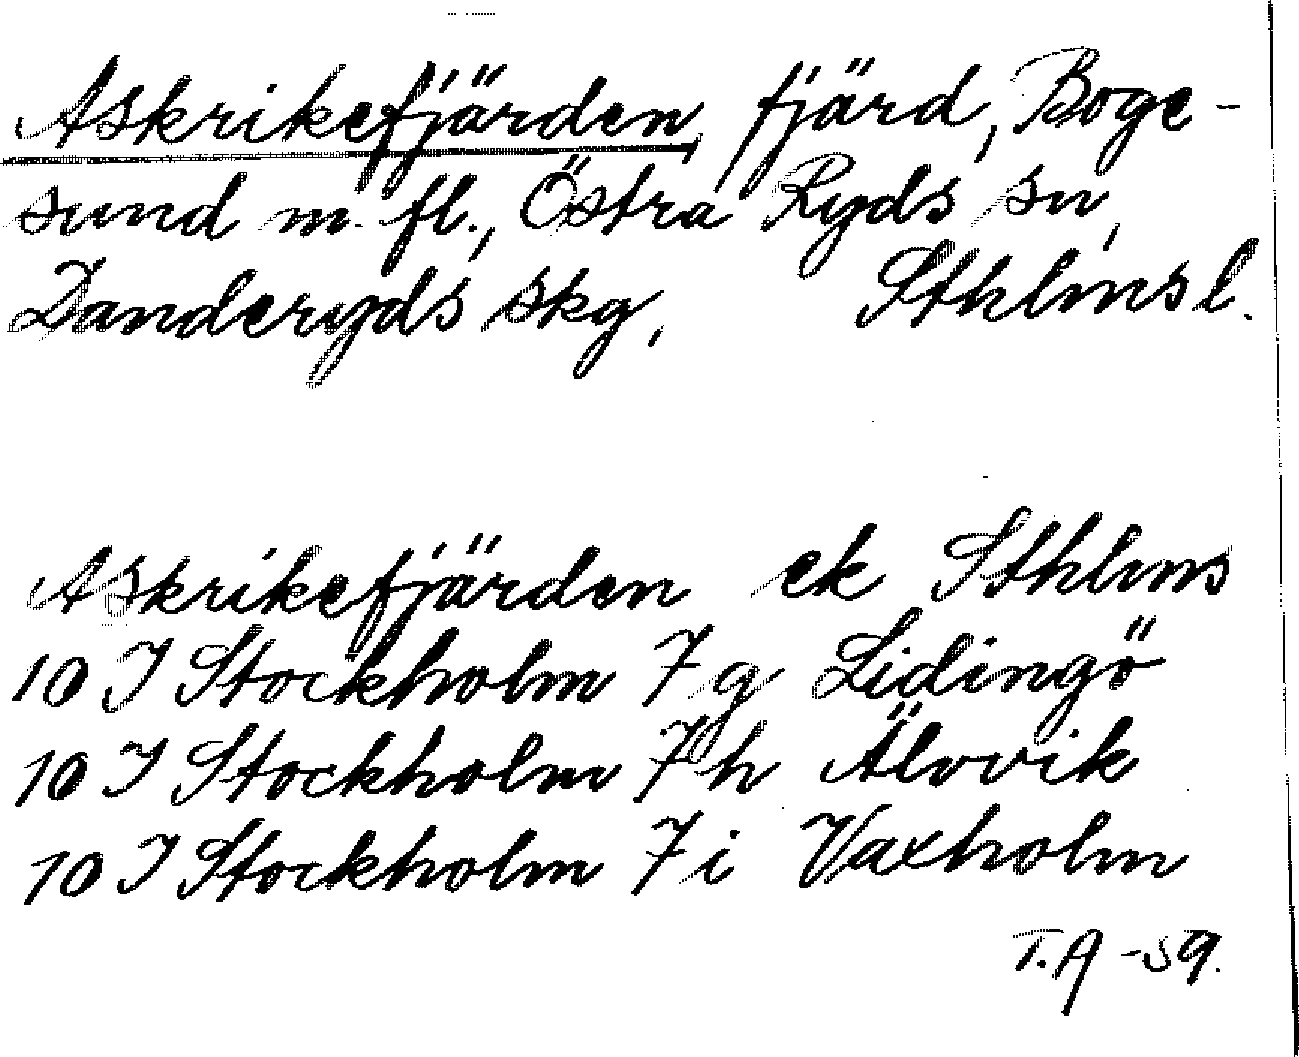 Askrikefjärden, fjärd, Boge-
sund m. fl., Östra Ryds sn,
Danderyds skg, Sthlms l.
Askrikefjärden ek Sthlms
10 I Stockholm 7 g Lidingö
10 I Stockholm 7 h Älvvik
10 I Stockholm 7 i Vaxholm
T.A -59.